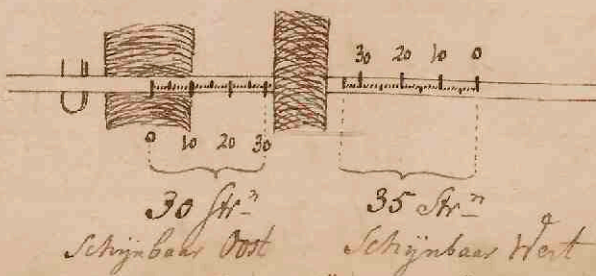 30 20 10 0
0 10 20 30
30 Strn 35 Strn
Schijnbaar Oost Schijnbaar West